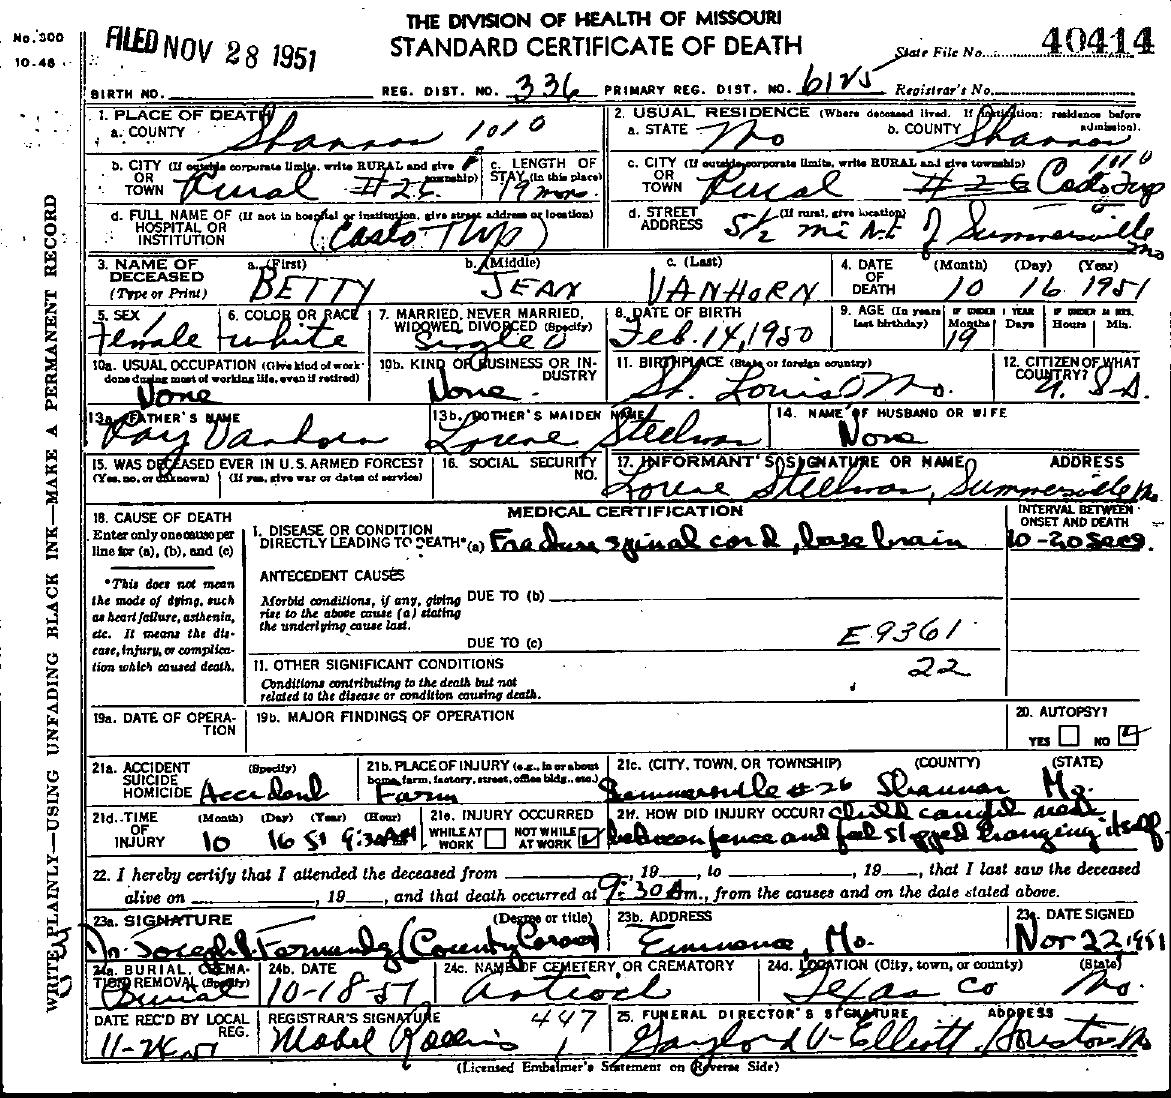 THE DIVISION OF HEALTH OF MISSOURI
STANDARD CERTIFICATE OF DEATH
No. 300
10-48
FILED NOV 28 1951
State File No. 40414
BIRTH NO. REG. DIST. NO. 336 PRIMARY REG. DIST. NO. 6125 Registrar's No.
1. PLACE OF DEATH
a. COUNTY Shannon 1010
2. USUAL RESIDENCE (Where deceased lived. If institution: residence before admission).
a. STATE Mo b. COUNTY Shannon
b. CITY (If outside corporate limits, write RURAL and give township) OR TOWN Rural #26
c. LENGTH OF STAY (in this place) 19 mos.
c. CITY (If outside corporate limits, write RURAL and give township) OR TOWN Rural #26 Casto Twp 1010
d. FULL NAME OF (If not in hospital or institution, give street address or location) HOSPITAL OR INSTITUTION (Casto Twp)
d. STREET ADDRESS (If rural, give location) 5 1/2 mi N.E of Summersville Mo
3. NAME OF DECEASED (Type or Print)
a. (First) BETTY b. (Middle) JEAN c. (Last) VANHORN
4. DATE OF DEATH (Month) (Day) (Year) 10 16 1951
5. SEX Female
6. COLOR OR RACE white
7. MARRIED, NEVER MARRIED, WIDOWED, DIVORCED (Specify) Single 0
8. DATE OF BIRTH Feb. 14, 1950
9. AGE (In years last birthday) IF UNDER 1 YEAR Months Days IF UNDER 24 HRS. Hours Min. 19
10a. USUAL OCCUPATION (Give kind of work done during most of working life, even if retired) None
10b. KIND OF BUSINESS OR INDUSTRY None
11. BIRTHPLACE (State or foreign country) St. Louis Mo.
12. CITIZEN OF WHAT COUNTRY? U.S.A.
13a. FATHER'S NAME Ray Vanhorn
13b. MOTHER'S MAIDEN NAME Lorene Steelman
14. NAME OF HUSBAND OR WIFE None
15. WAS DECEASED EVER IN U.S. ARMED FORCES? (Yes, no, or unknown) (If yes, give war or dates of service)
16. SOCIAL SECURITY NO.
17. INFORMANT'S SIGNATURE OR NAME ADDRESS
Lorene Steelman, Summersville Mo
18. CAUSE OF DEATH
Enter only one cause per line for (a), (b), and (c)
*This does not mean the mode of dying, such as heart failure, asthenia, etc. It means the disease, injury, or complication which caused death.
MEDICAL CERTIFICATION
INTERVAL BETWEEN ONSET AND DEATH
1. DISEASE OR CONDITION DIRECTLY LEADING TO DEATH* (a) Fracture spinal cord, base brain 10-20 secs.
ANTECEDENT CAUSES
Morbid conditions, if any, giving rise to the above cause (a) stating the underlying cause last.
DUE TO (b)
DUE TO (c) E9361
22
11. OTHER SIGNIFICANT CONDITIONS
Conditions contributing to the death but not related to the disease or condition causing death.
19a. DATE OF OPERATION
19b. MAJOR FINDINGS OF OPERATION
20. AUTOPSY?
YES NO
21a. ACCIDENT SUICIDE HOMICIDE (Specify) Accident
21b. PLACE OF INJURY (e.g., in or about home, farm, factory, street, office bldg., etc.) Farm
21c. (CITY, TOWN, OR TOWNSHIP) (COUNTY) (STATE)
Summersville #26 Shannon Mo.
21d. TIME OF INJURY (Month) (Day) (Year) (Hour) 10 16 51 9:30AM
21e. INJURY OCCURRED WHILE AT WORK NOT WHILE AT WORK
21f. HOW DID INJURY OCCUR? child caught neck
between fence and feet slipped hanging itself
22. I hereby certify that I attended the deceased from , 19 , to , 19 , that I last saw the deceased
alive on , 19 , and that death occurred at 9:30 Am., from the causes and on the date stated above.
23a. SIGNATURE (Degree or title)
Dr. Joseph (County Coroner)
23b. ADDRESS Eminence, Mo.
23c. DATE SIGNED Nov 22, 1951
24a. BURIAL, CREMATION REMOVAL (Specify) Burial
24b. DATE 10-18-51
24c. NAME OF CEMETERY OR CREMATORY Antioch
24d. LOCATION (City, town, or county) (State) Texas Co Mo.
DATE REC'D BY LOCAL REG. 11-24-51
REGISTRAR'S SIGNATURE 447
Mabel Rollins
25. FUNERAL DIRECTOR'S SIGNATURE ADDRESS
Gaylord V. Elliott, Houston Mo
(Licensed Embalmer's Statement on Reverse Side)
WRITE PLAINLY—USING UNFADING BLACK INK—MAKE A PERMANENT RECORD